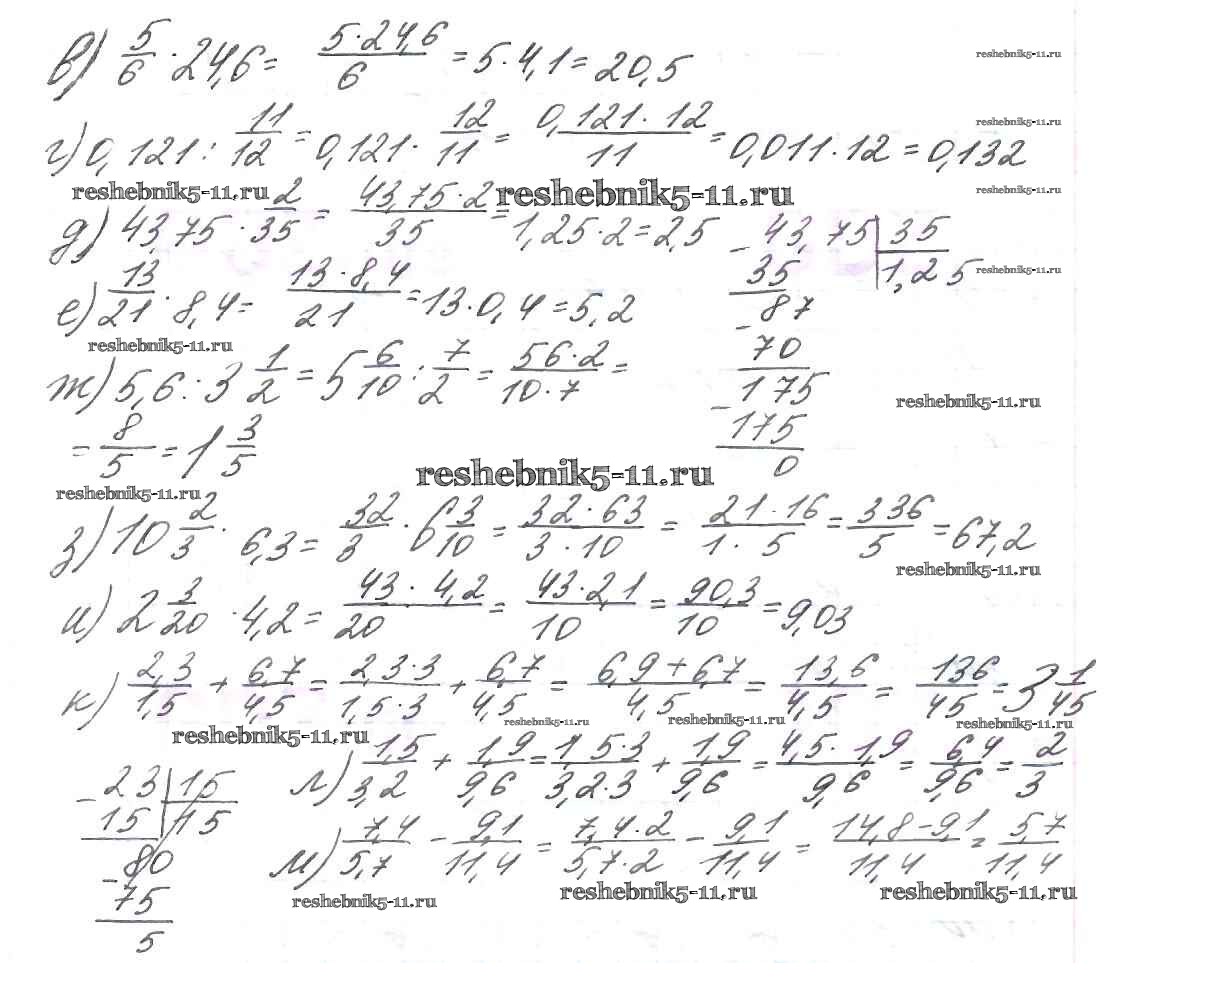 в) 5/6 · 24,6 = (5·24,6)/6 = 5·4,1 = 20,5
reshebnik5-11.ru
г) 0,121 : 11/12 = 0,121 · 12/11 = (0,121·12)/11 = 0,011·12 = 0,132
reshebnik5-11.ru
reshebnik5-11.ru reshebnik5-11.ru reshebnik5-11.ru
д) 43,75 · 2/35 = (43,75·2)/35 = 1,25·2 = 2,5
- 43,75 | 35
35 | 1,25
- 87
70
- 175
175
0
reshebnik5-11.ru
е) 13/21 · 8,4 = (13·8,4)/21 = 13·0,4 = 5,2
reshebnik5-11.ru
ж) 5,6 : 3 1/2 = 5 6/10 : 7/2 = (56·2)/(10·7) =
reshebnik5-11.ru
= 8/5 = 1 3/5
reshebnik5-11.ru
reshebnik5-11.ru
з) 10 2/3 · 6,3 = 32/3 · 6 3/10 = (32·63)/(3·10) = (21·16)/(1·5) = 336/5 = 67,2
reshebnik5-11.ru
и) 2 3/20 · 4,2 = (43·4,2)/20 = (43·2,1)/10 = 90,3/10 = 9,03
к) 2,3/1,5 + 6,7/4,5 = (2,3·3)/(1,5·3) + 6,7/4,5 = (6,9+6,7)/4,5 = 13,6/4,5 = 136/45 = 3 1/45
reshebnik5-11.ru reshebnik5-11.ru reshebnik5-11.ru reshebnik5-11.ru
- 23 | 15
15 | 15
- 80
75
5
л) 1,5/3,2 + 1,9/9,6 = (1,5·3)/(3,2·3) + 1,9/9,6 = (4,5·1,9)/9,6 = 6,4/9,6 = 2/3
м) 7,4/5,7 - 9,1/11,4 = (7,4·2)/(5,7·2) - 9,1/11,4 = (14,8-9,1)/11,4 = 5,7/11,4
reshebnik5-11.ru reshebnik5-11.ru reshebnik5-11.ru